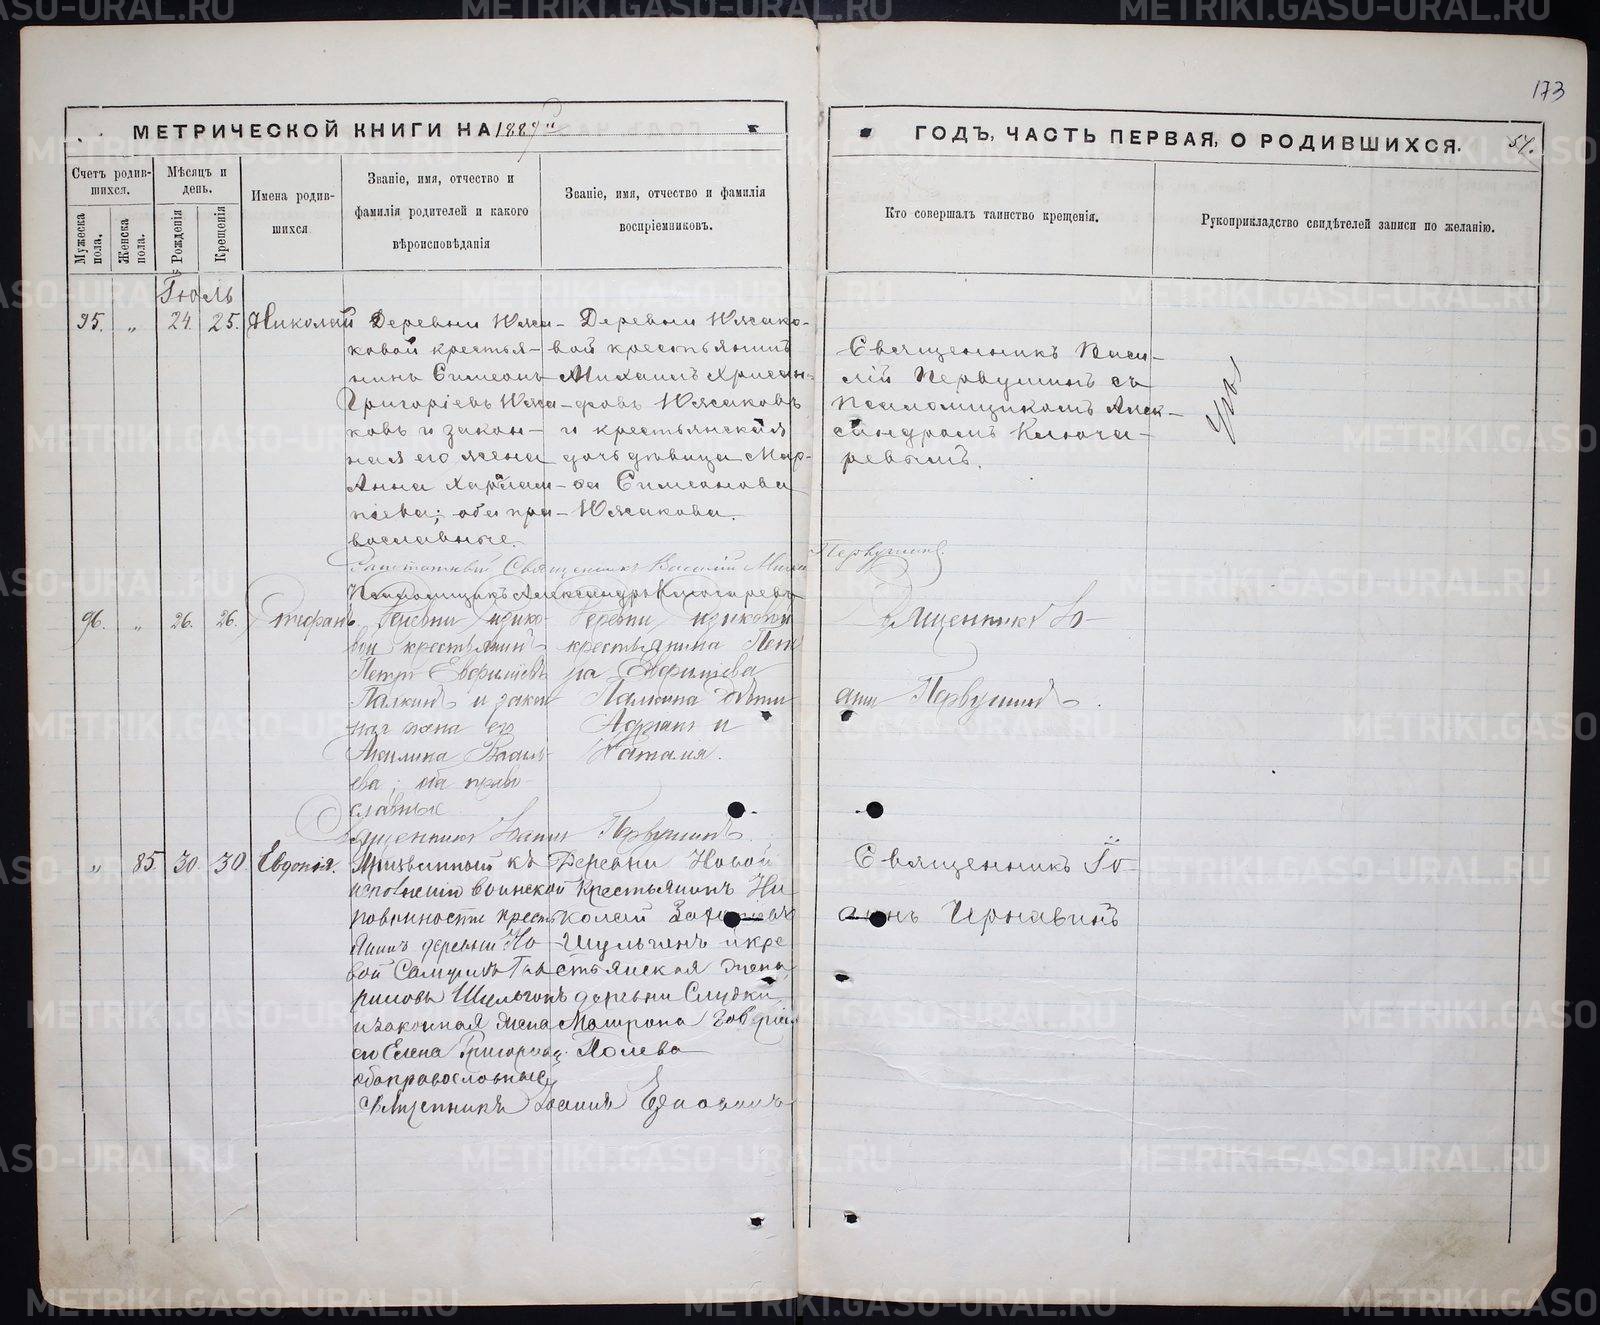 173
МЕТРИЧЕСКОЙ КНИГИ НА 1889й
ГОДЪ, ЧАСТЬ ПЕРВАЯ, О РОДИВШИХСЯ.
57.
Счетъ родив-
шихся.
Мужеска пола.
Женска пола.
Мѣсяцъ и
день.
Рожденія
Крещенія
Имена родив-
шихся
Званіе, имя, отчество и
фамилія родителей и какого
вѣроисповѣданія
Званіе, имя, отчество и фамилія
воспріемниковъ.
Кто совершалъ таинство крещенія.
Рукоприкладство свидѣтелей записи по желанію.
Іюль
95. „ 24. 25. Николай
Деревни Южа-
ковой крестья-
нинъ Симеонъ
Григоріевъ Южа-
ковъ и закон-
ная его жена
Анна Харлам-
піева; оба пра-
вославные.
Деревни Южако-
вой крестьянинъ
Михаилъ Хрисан-
фовъ Южаковъ
и крестьянская
дочь дѣвица Мар-
фа Симеонова
Южакова.
Священникъ Васи-
лій Первушинъ съ
псаломщикомъ Алек-
сандромъ Ключа-
ревымъ.
Священникъ Василій
Первушинъ.
Псаломщикъ Александръ Ключаревъ
96. „ 26. 26. Стефанъ
Деревни
вой крестьянинъ
Петръ Евфиміевъ
Палкинъ и закон
ная жена его
Акилина Василь-
ева; оба право-
славные
Деревни
крестьянина Пет
ра Евфиміева
Палкина дѣти
Адріанъ и
Наталія.
Священникъ Іо-
аннъ Первушинъ.
Священникъ Іоаннъ Первушинъ
„ 85. 30. 30. Евдокія.
Призванный къ
исполненію воинской
повинности крестья
нинъ деревни Но-
вой Самуилъ Га
риловъ Шульгинъ
и законная жена
его Елена Григорьева
оба православные
Деревни Новой
крестьянинъ Ни
колай
Шульгинъ и кре
стьянская жена
деревни Слудки
Матрона
Полева
Священникъ Іо-
аннъ Чернавинъ
Священникъ Іоаннъ